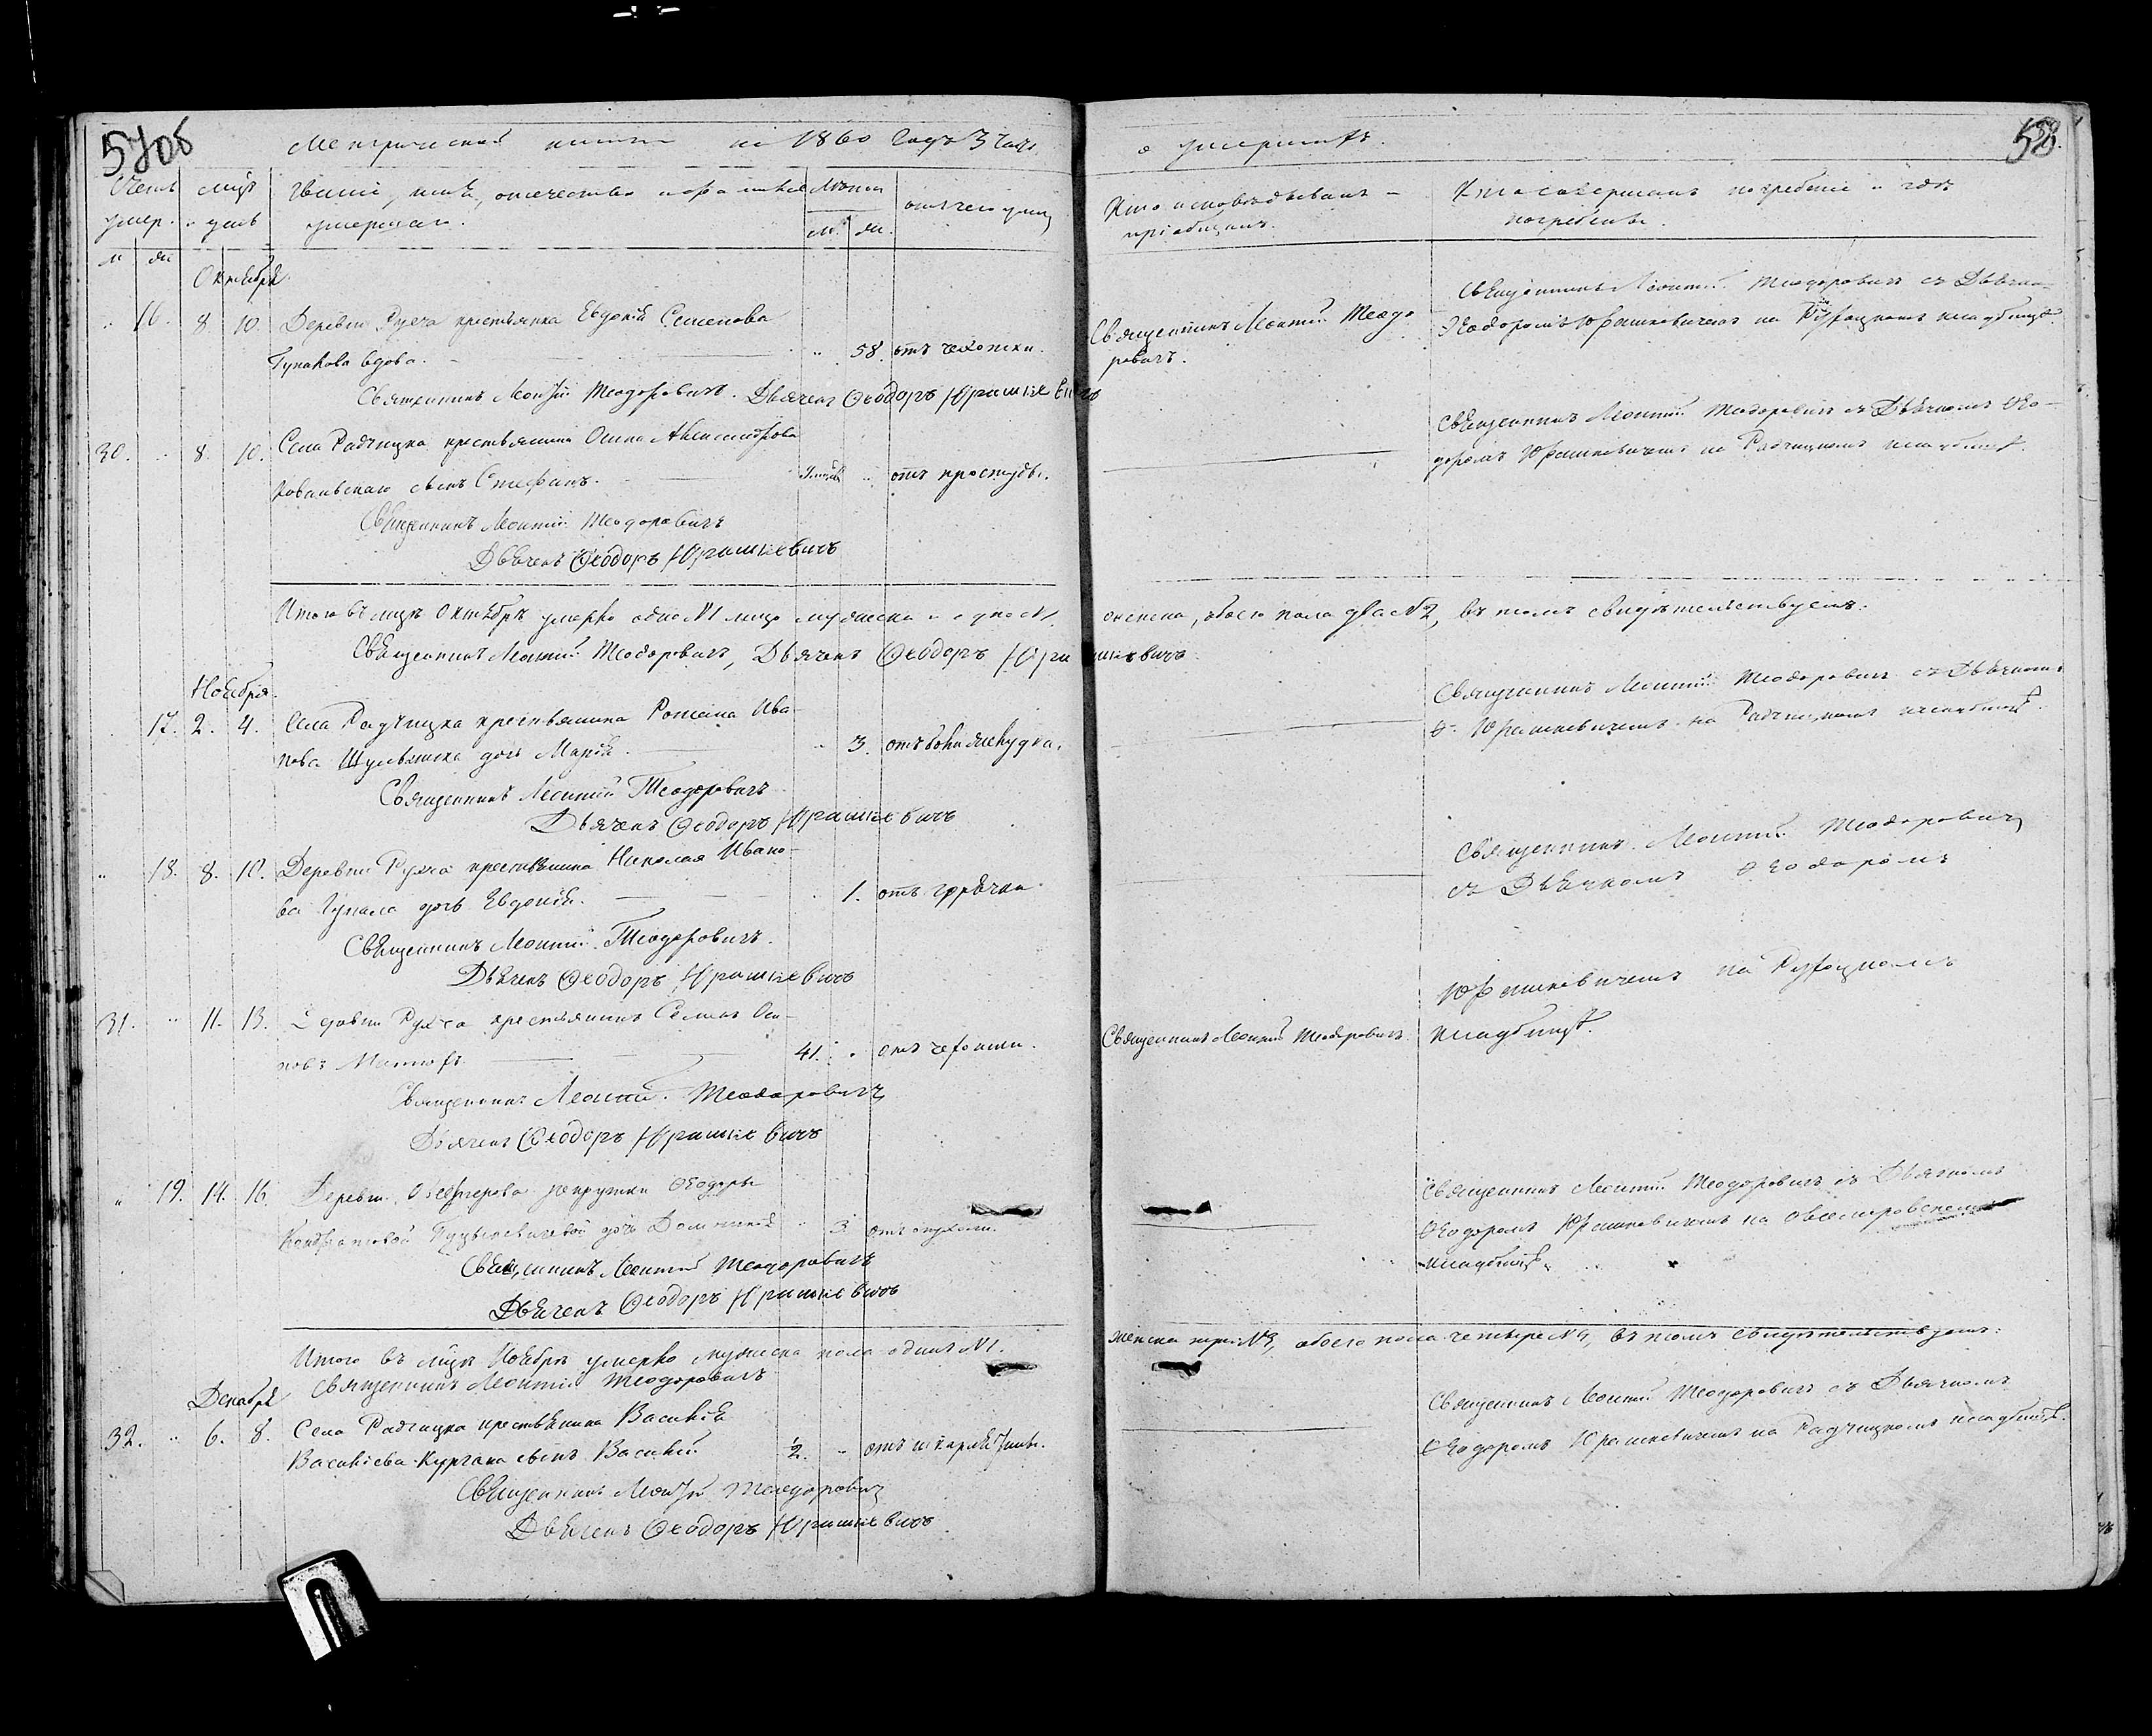 5708
58.
Метрической книги на 1860 годъ 3 часть
о умершихъ.
Счетъ умер.
мцъ и день
Званіе, имя, отечество и фамилія умершаго.
Лѣта
м. ж.
отъ чего умер
Кто исповѣдывалъ и пріобщалъ.
Кто совершалъ погребеніе и гдѣ погребены.
м ж
Октября.
" 16. 8. 10. Деревни Ручча крестьянка Евдокія Семенова
Гупалова вдова. " 58. отъ чахотки.
Священникъ Леонтій Теодоровичъ. Дьячекъ Ѳеодоръ Юрашкевичъ
Священникъ Леонтій Теодо
ровичъ.
Священникъ Леонтій Теодоровичъ съ Дьячко
Ѳеодоромъ Юрашкевичемъ на кладбищѣ.
30. " 8. 10. Села Радчицка крестьянина Осипа Александрова
Ковальскаго сынъ Стефанъ. " отъ простуды.
Священникъ Леонтій Теодоровичъ
Дьячекъ Ѳеодоръ Юрашкевичъ
Священникъ Леонтій Теодоровичъ съ Дьячкомъ Ѳео-
доромъ Юрашкевичемъ на Радчицкомъ кладбищѣ.
Итого въ мцѣ Октябрѣ умерло одно №1 лицо мужеска и одно №1
женска, обоего пола два №2, въ томъ свидѣтельствуемъ.
Священникъ Леонтій Теодоровичъ, Дьячекъ Ѳеодоръ Юрашкевичъ.
Ноября.
17. 2. 4. Села Радчицка крестьянина Романа Ива-
нова дочь Марія. " 3. отъ боли желудка.
Священникъ Леонтій Теодоровичъ
Дьячекъ Ѳеодоръ Юрашкевичъ
Священникъ Леонтій Теодоровичъ съ Дьячкомъ
Ѳ. Юрашкевичемъ на Радчицкомъ кладбищѣ.
" 18. 8. 10. Деревни крестьянина Николая Ивано-
ва Гупала дочь Евдокія. 1. отъ горячки.
Священникъ Леонтій Теодоровичъ.
Дьячекъ Ѳеодоръ Юрашкевичъ
Священникъ Леонтій Теодоровичъ
съ Дьячкомъ Ѳеодоромъ
Юрашкевичемъ на
кладбищѣ.
31. " 11. 13. Деревни крестьянинъ Семенъ Оси-
повъ 41. " отъ чахотки.
Священникъ Леонтій Теодоровичъ.
Священникъ Леонтій Теодоровичъ
Дьячекъ Ѳеодоръ Юрашкевичъ
" 19. 14. 16. Деревни рекрутки Ѳеодоры
дочь Домникія " 3 отъ опухоли.
Священникъ Леонтій Теодоровичъ
Дьячекъ Ѳеодоръ Юрашкевичъ
Священникъ Леонтій Теодоровичъ съ Дьячкомъ
Ѳеодоромъ Юрашкевичемъ на
кладбищѣ.
Итого въ мцѣ Ноябрѣ умерло мужеска пола одинъ №1.
женска три №3, обоего пола четыре №4, въ томъ свидѣтельствуемъ:
Священникъ Леонтій Теодоровичъ
Декабря
32. " 6. 8. Села Радчицка крестьянина Василія
Василіева Кургана сынъ Василій 1/2. "
Священникъ Леонтій Теодоровичъ
Дьячекъ Ѳеодоръ Юрашкевичъ
Священникъ Леонтій Теодоровичъ съ Дьячкомъ
Ѳеодоромъ Юрашкевичемъ на Радчицкомъ кладбищѣ.